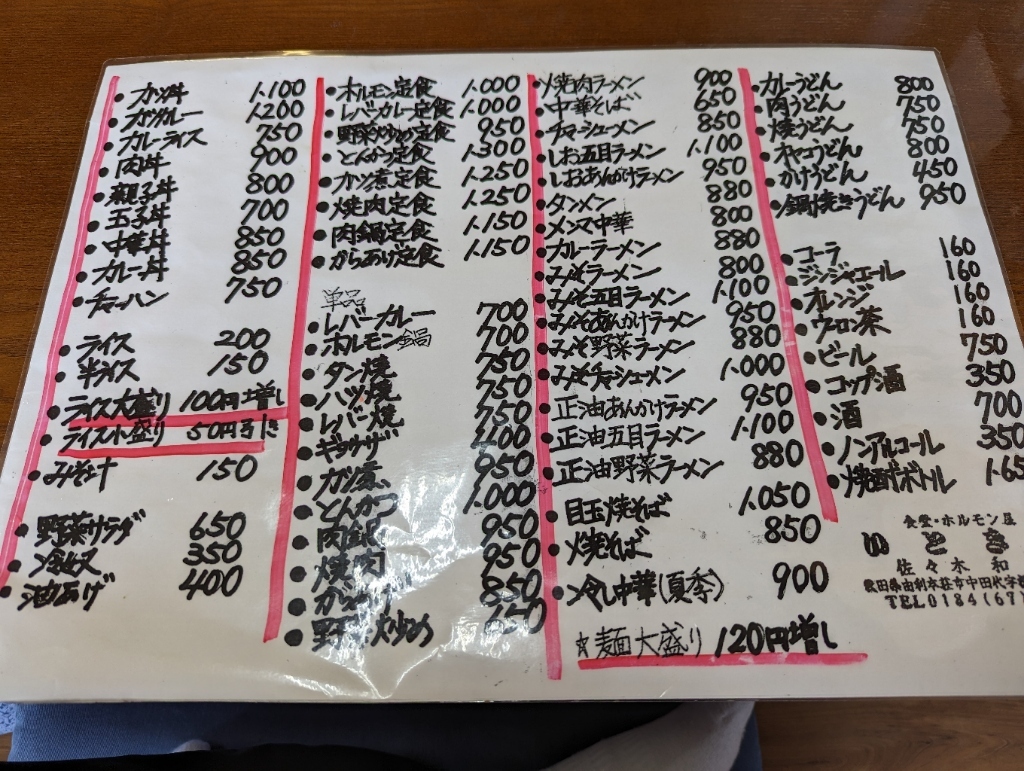 ・カツ丼 1.100
・カツカレー 1.200
・カレーライス 750
・肉丼 900
・親子丼 800
・玉子丼 700
・中華丼 850
・カレー丼 850
・チャーハン 750
・ライス 200
・半ライス 150
・ライス大盛り 100円増し
・ライス小盛り 50円引き
・みそ汁 150
・野菜サラダ 650
350
・油あげ 400
・ホルモン定食 1.000
・レバーカレー定食 1.000
・野菜炒め定食 950
・とんかつ定食 1.300
・カツ煮定食 1.250
・焼肉定食 1.250
・肉鍋定食 1.150
・からあげ定食 1.150
単品
・レバーカレー 700
・ホルモン鍋 700
・タン焼 750
・ハツ焼 750
・レバー焼 750
・ギョウザ
・カツ煮 950
・とんかつ 1.000
・肉鍋 950
・焼肉 950
850
・野菜炒め 650
・焼肉ラーメン 900
・中華そば 650
・チャーシューメン 850
・しお五目ラーメン 1.100
・しおあんかけラーメン 950
・タンメン 880
・メンマ中華 800
・カレーラーメン 880
・みそラーメン 800
・みそ五目ラーメン 1.100
・みそあんかけラーメン 950
・みそ野菜ラーメン 880
・みそチャーシューメン 1.000
・正油あんかけラーメン 950
・正油五目ラーメン 1.100
・正油野菜ラーメン 880
・目玉焼そば 1.050
・焼そば 850
・冷し中華(夏季) 900
☆麺大盛り 120円増し
・カレーうどん 800
・肉うどん 750
・焼うどん 750
・オヤコうどん 800
・かけうどん 450
・鍋焼きうどん 950
・コーラ 160
・ジンジャエール 160
・オレンジ 160
・ウーロン茶 160
・ビール 750
・コップ酒 350
・酒 700
・ノンアルコール 350
・焼酎ボトル 1.65
食堂・ホルモン屋
佐々木 和
秋田県由利本荘市中田代字
TEL0184(67)